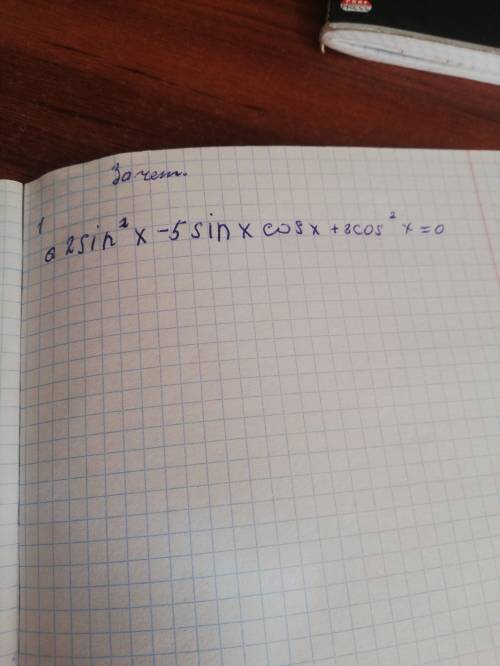 Зачет.
1
a 2sin²x - 5sinx cosx + 3cos²x = 0